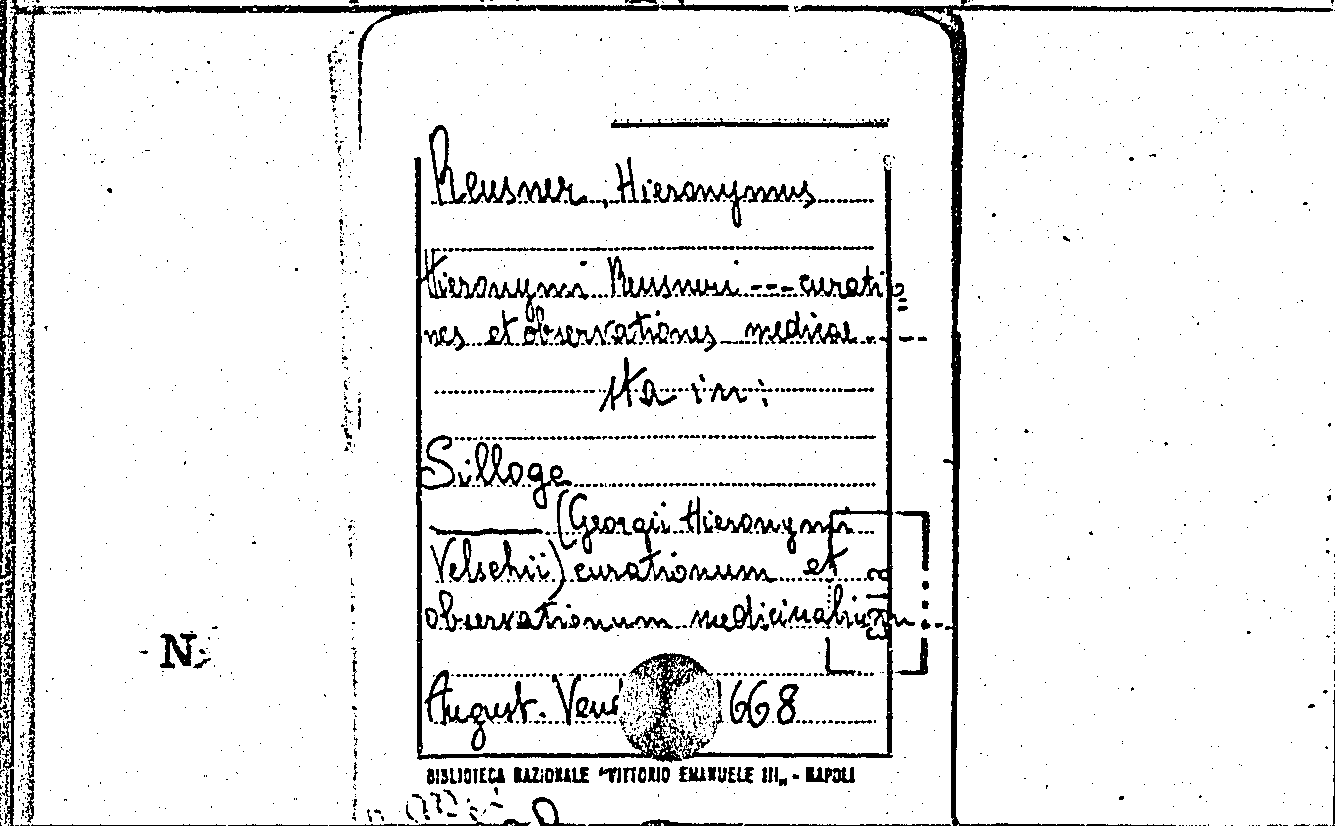 Reusner, Hieronymus
Hieronymi Reusneri --- curatio=
nes et observationes medicae - - -
Sta in:
Silloge
——— (Georgii Hieronymi
Velschii) curationum et
observationum medicinalium - - -
August. 668
BIBLIOTECA NAZIONALE "VITTORIO EMANUELE III„ - NAPOLI
N.